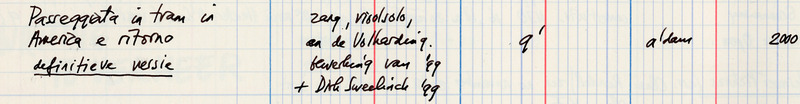 Passeggiata in tram in
America e ritorno
definitieve versie
zang, vioolsolo,
en de Volharding.
bewerking van '99
+ Dirk Sweelinck '99
9'
a'dam
2000